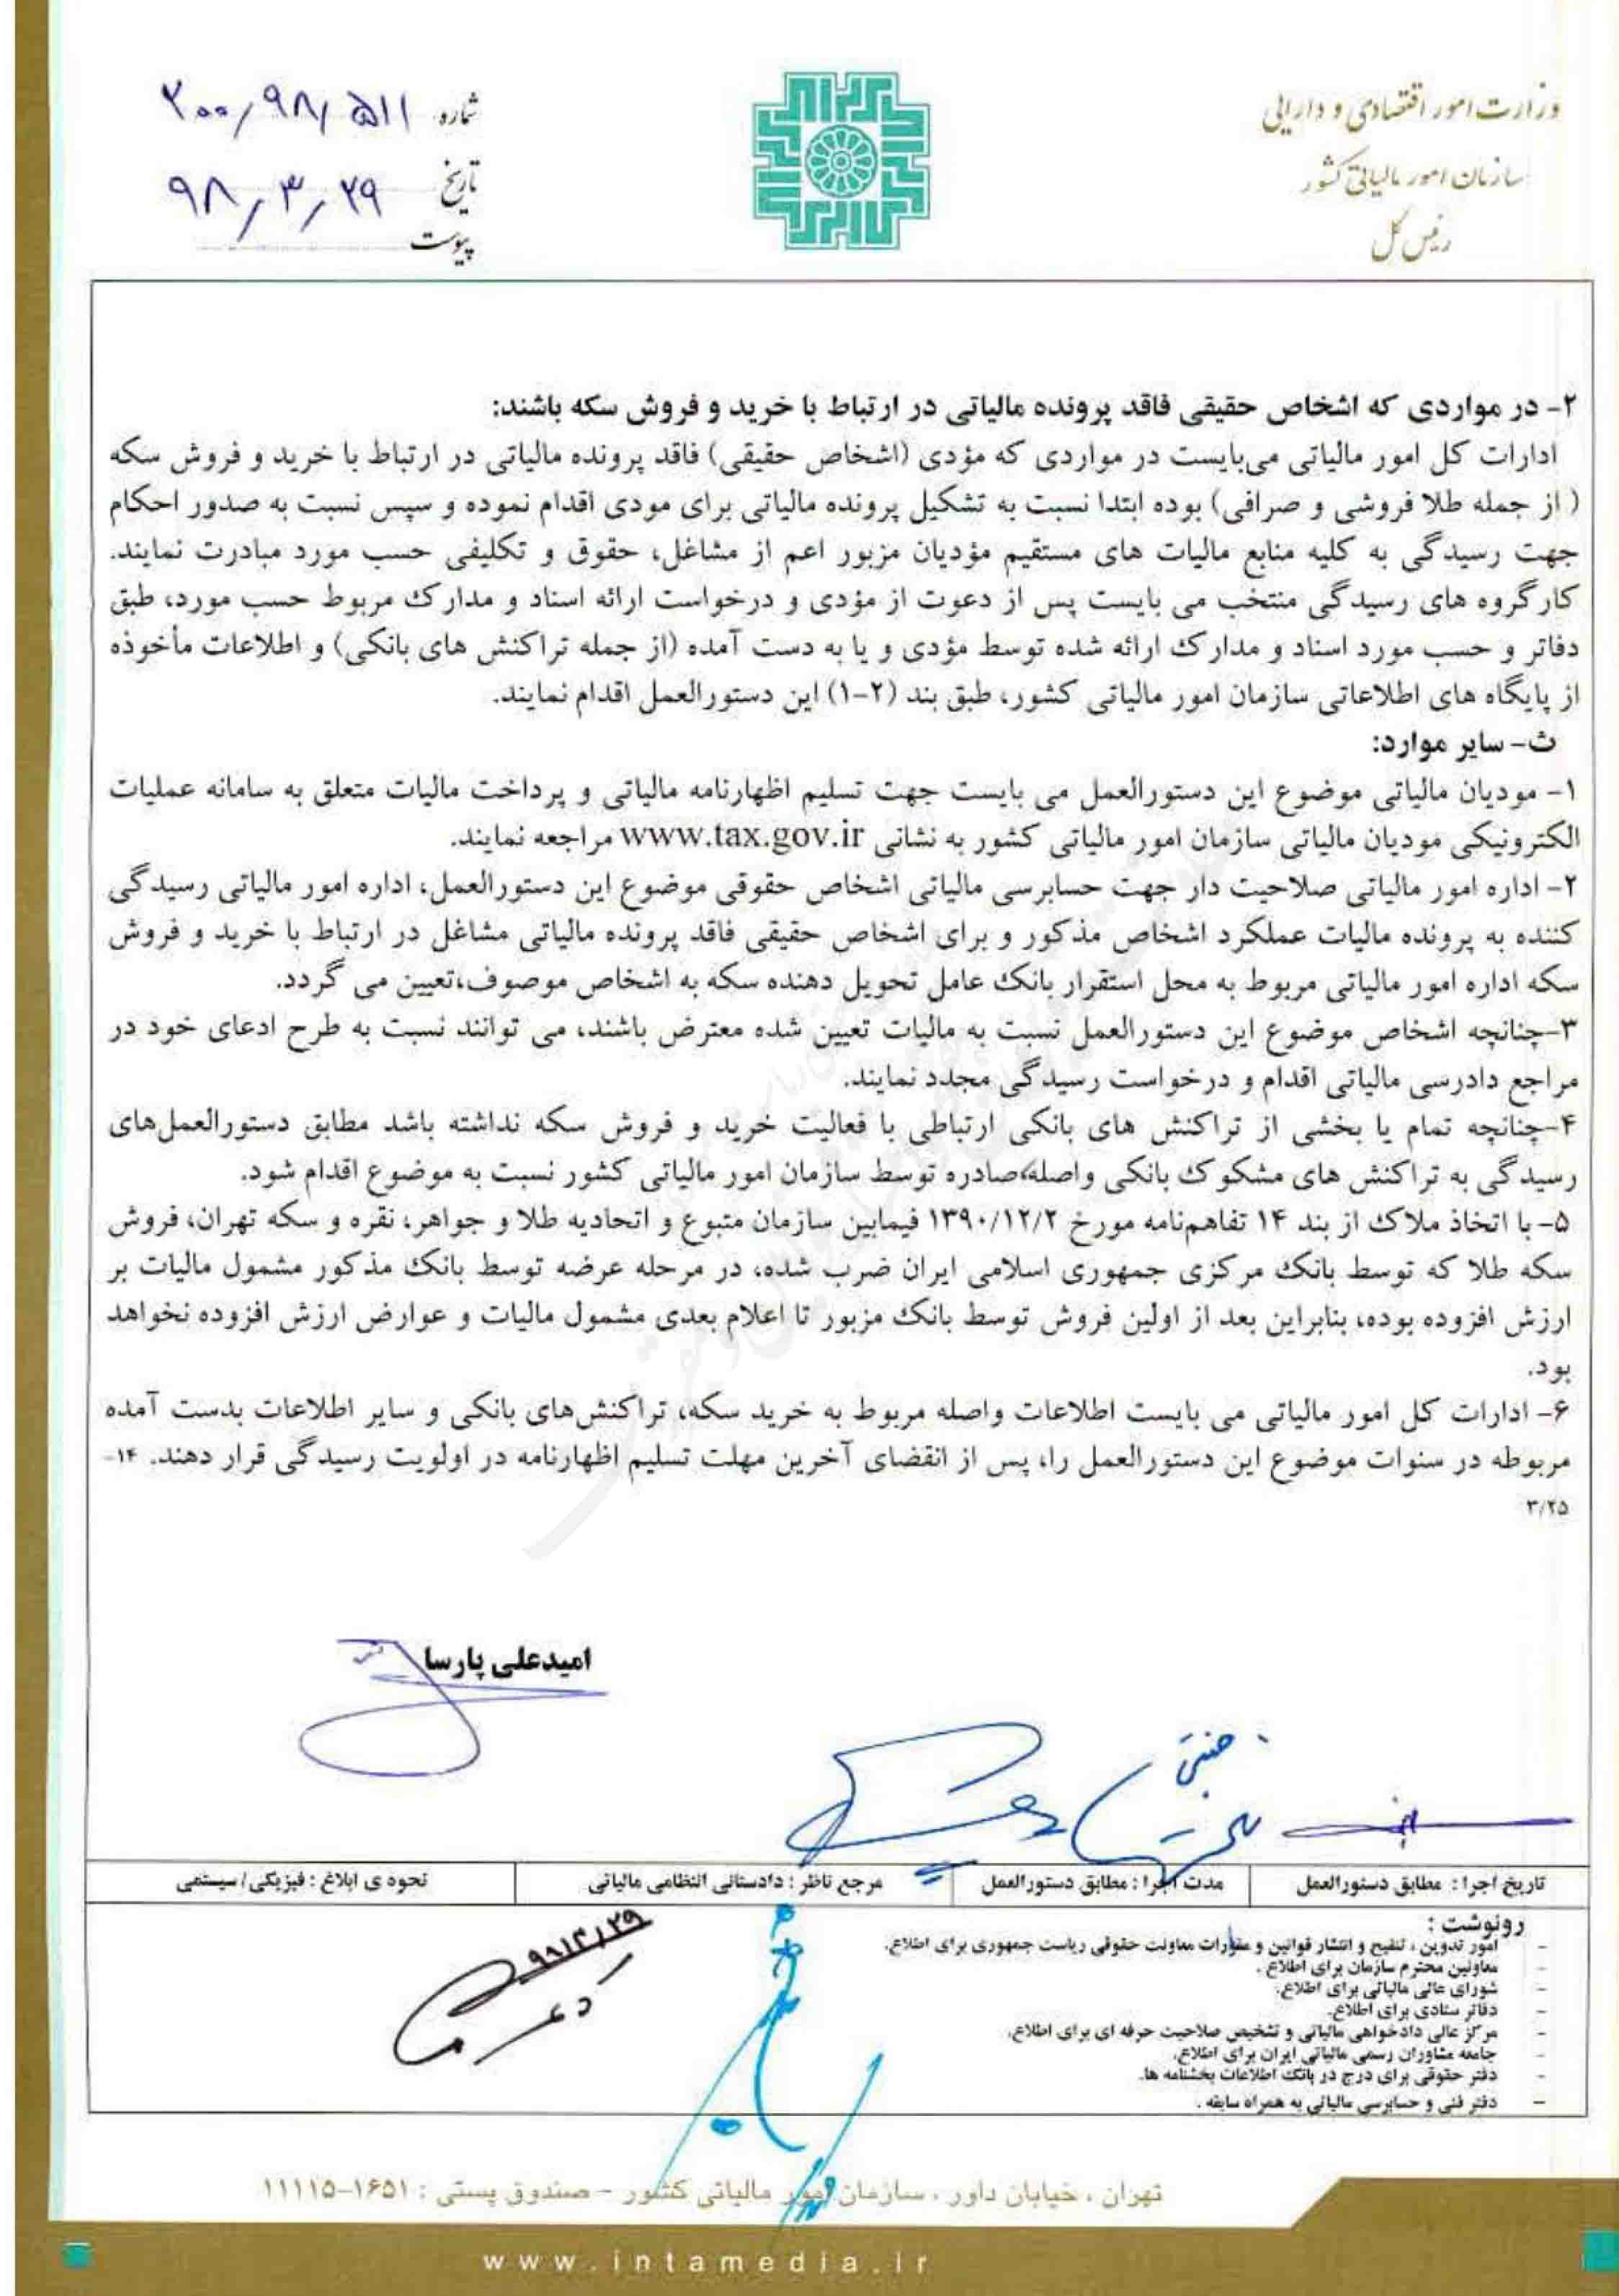 وزارت امور اقتصادی و دارایی
سازمان امور مالیاتی کشور
رئیس کل
شماره ۲۰۰/۹۸/۵۱۱
تاریخ ۹۸/۳/۲۹
پیوست
۲- در مواردی که اشخاص حقیقی فاقد پرونده مالیاتی در ارتباط با خرید و فروش سکه باشند:
ادارات کل امور مالیاتی می‌بایست در مواردی که مؤدی (اشخاص حقیقی) فاقد پرونده مالیاتی در ارتباط با خرید و فروش سکه
( از جمله طلا فروشی و صرافی) بوده ابتدا نسبت به تشکیل پرونده مالیاتی برای مودی اقدام نموده و سپس نسبت به صدور احکام
جهت رسیدگی به کلیه منابع مالیات های مستقیم مؤدیان مزبور اعم از مشاغل، حقوق و تکلیفی حسب مورد مبادرت نمایند.
کارگروه های رسیدگی منتخب می بایست پس از دعوت از مؤدی و درخواست ارائه اسناد و مدارک مربوط حسب مورد، طبق
دفاتر و حسب مورد اسناد و مدارک ارائه شده توسط مؤدی و یا به دست آمده (از جمله تراکنش های بانکی) و اطلاعات مأخوذه
از پایگاه های اطلاعاتی سازمان امور مالیاتی کشور، طبق بند (۲-۱) این دستورالعمل اقدام نمایند.
ث- سایر موارد:
۱- مودیان مالیاتی موضوع این دستورالعمل می بایست جهت تسلیم اظهارنامه مالیاتی و پرداخت مالیات متعلق به سامانه عملیات
الکترونیکی مودیان مالیاتی سازمان امور مالیاتی کشور به نشانی www.tax.gov.ir مراجعه نمایند.
۲- اداره امور مالیاتی صلاحیت دار جهت حسابرسی مالیاتی اشخاص حقوقی موضوع این دستورالعمل، اداره امور مالیاتی رسیدگی
کننده به پرونده مالیات عملکرد اشخاص مذکور و برای اشخاص حقیقی فاقد پرونده مالیاتی مشاغل در ارتباط با خرید و فروش
سکه اداره امور مالیاتی مربوط به محل استقرار بانک عامل تحویل دهنده سکه به اشخاص موصوف،تعیین می گردد.
۳-چنانچه اشخاص موضوع این دستورالعمل نسبت به مالیات تعیین شده معترض باشند، می توانند نسبت به طرح ادعای خود در
مراجع دادرسی مالیاتی اقدام و درخواست رسیدگی مجدد نمایند.
۴-چنانچه تمام یا بخشی از تراکنش های بانکی ارتباطی با فعالیت خرید و فروش سکه نداشته باشد مطابق دستورالعمل‌های
رسیدگی به تراکنش های مشکوک بانکی واصله،صادره توسط سازمان امور مالیاتی کشور نسبت به موضوع اقدام شود.
۵- با اتخاذ ملاک از بند ۱۴ تفاهم‌نامه مورخ ۱۳۹۰/۱۲/۲ فیمابین سازمان متبوع و اتحادیه طلا و جواهر، نقره و سکه تهران، فروش
سکه طلا که توسط بانک مرکزی جمهوری اسلامی ایران ضرب شده، در مرحله عرضه توسط بانک مذکور مشمول مالیات بر
ارزش افزوده بوده، بنابراین بعد از اولین فروش توسط بانک مزبور تا اعلام بعدی مشمول مالیات و عوارض ارزش افزوده نخواهد
بود.
۶- ادارات کل امور مالیاتی می بایست اطلاعات واصله مربوط به خرید سکه، تراکنش‌های بانکی و سایر اطلاعات بدست آمده
مربوطه در سنوات موضوع این دستورالعمل را، پس از انقضای آخرین مهلت تسلیم اظهارنامه در اولویت رسیدگی قرار دهند. ۱۴-
۳/۲۵
امیدعلی پارسا
تاریخ اجرا : مطابق دستورالعمل
مدت اجرا : مطابق دستورالعمل
مرجع ناظر : دادستانی انتظامی مالیاتی
نحوه ی ابلاغ : فیزیکی/ سیستمی
۹۸/۳/۲۹
رونوشت :
- امور تدوین ، تنقیح و انتشار قوانین و مقررات معاونت حقوقی ریاست جمهوری برای اطلاع.
- معاونین محترم سازمان برای اطلاع .
- شورای عالی مالیاتی برای اطلاع.
- دفاتر ستادی برای اطلاع.
- مرکز عالی دادخواهی مالیاتی و تشخیص صلاحیت حرفه ای برای اطلاع.
- جامعه مشاوران رسمی مالیاتی ایران برای اطلاع.
- دفتر حقوقی برای درج در بانک اطلاعات بخشنامه ها.
- دفتر فنی و حسابرسی مالیاتی به همراه سابقه .
تهران ، خیابان داور ، سازمان امور مالیاتی کشور - صندوق پستی : ۱۶۵۱-۱۱۱۱۵
www.intamedia.ir